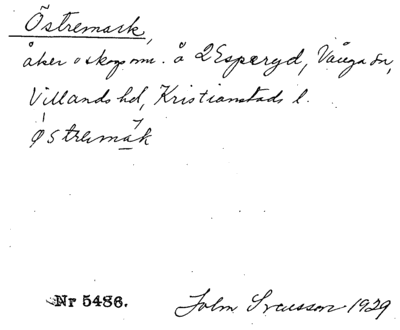 Östremark,
åker o skogsomr. å 2 Esperyd, Vånga sn,
Villands hd, Kristianstads l.
østremak
Nr 5486.
John Svensson 1929